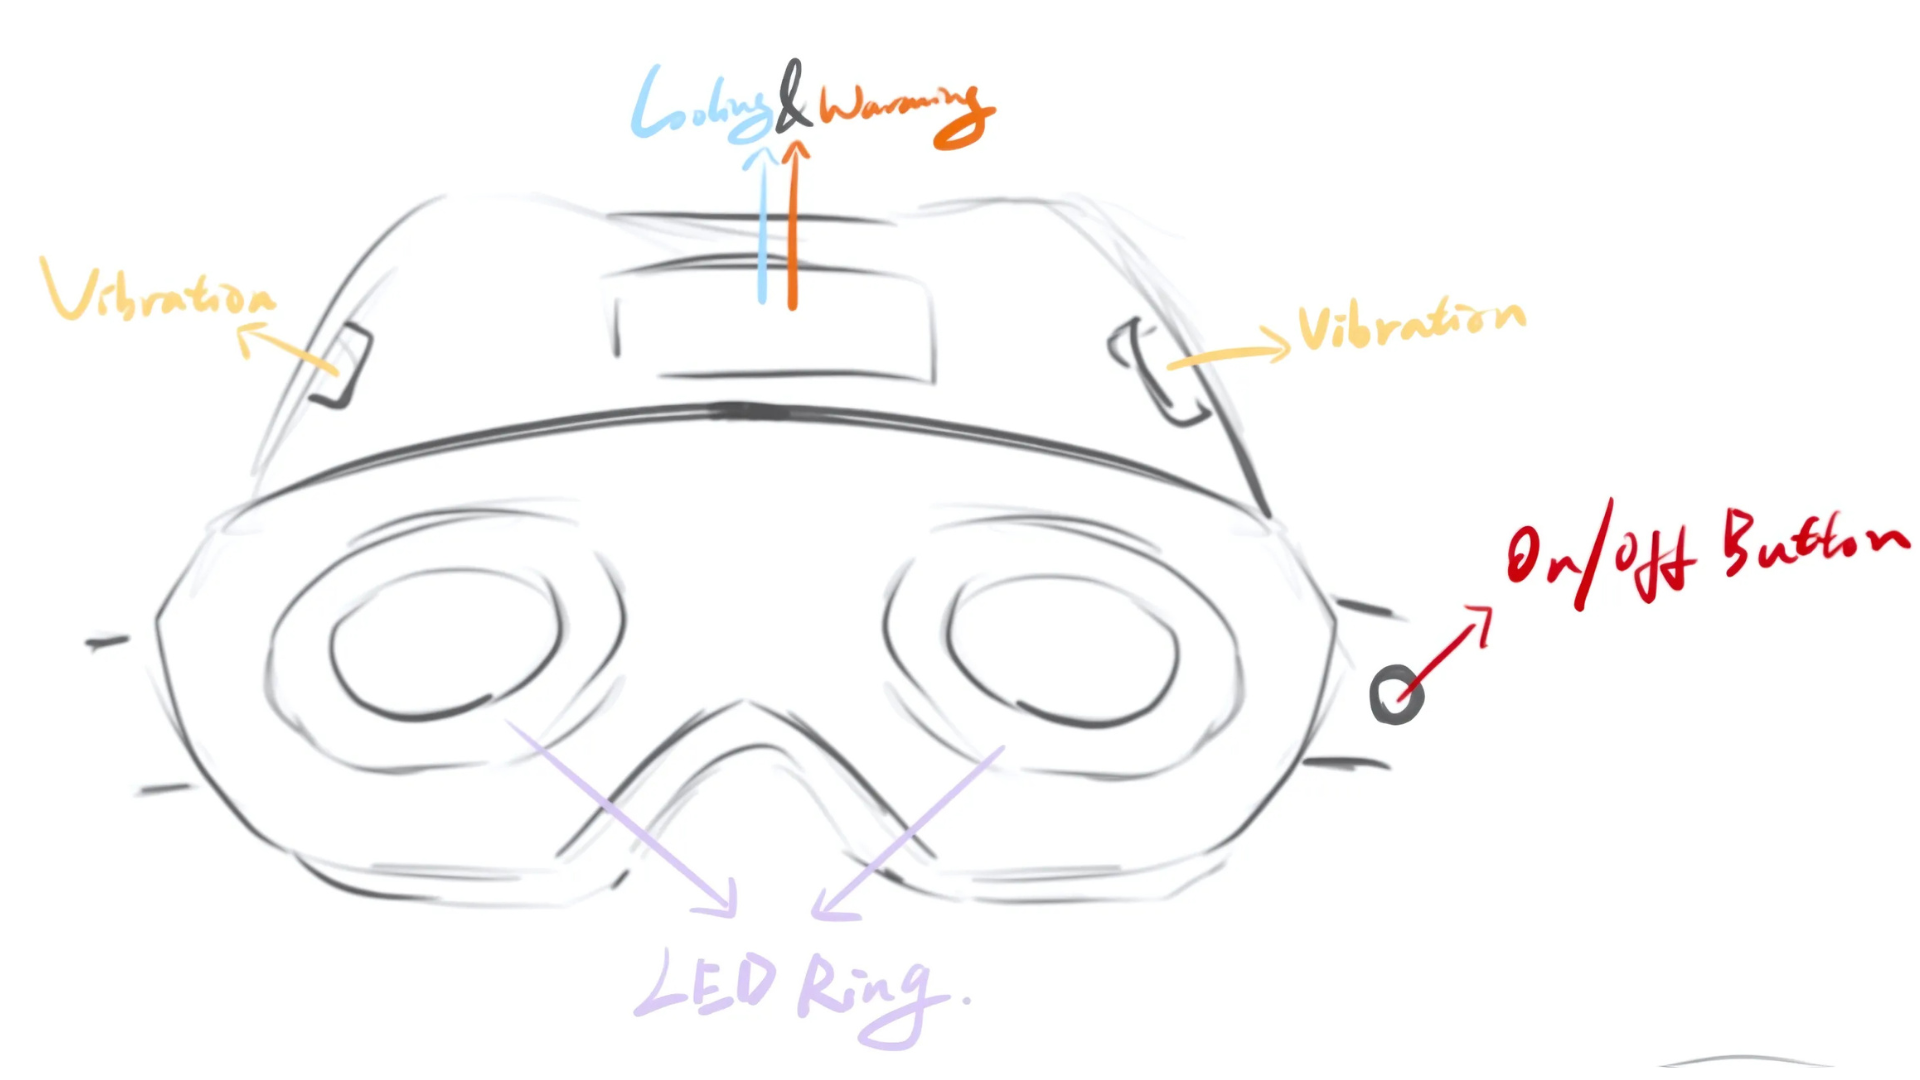 Cooling & Warming
Vibration
Vibration
On/Off Button
LED Ring.